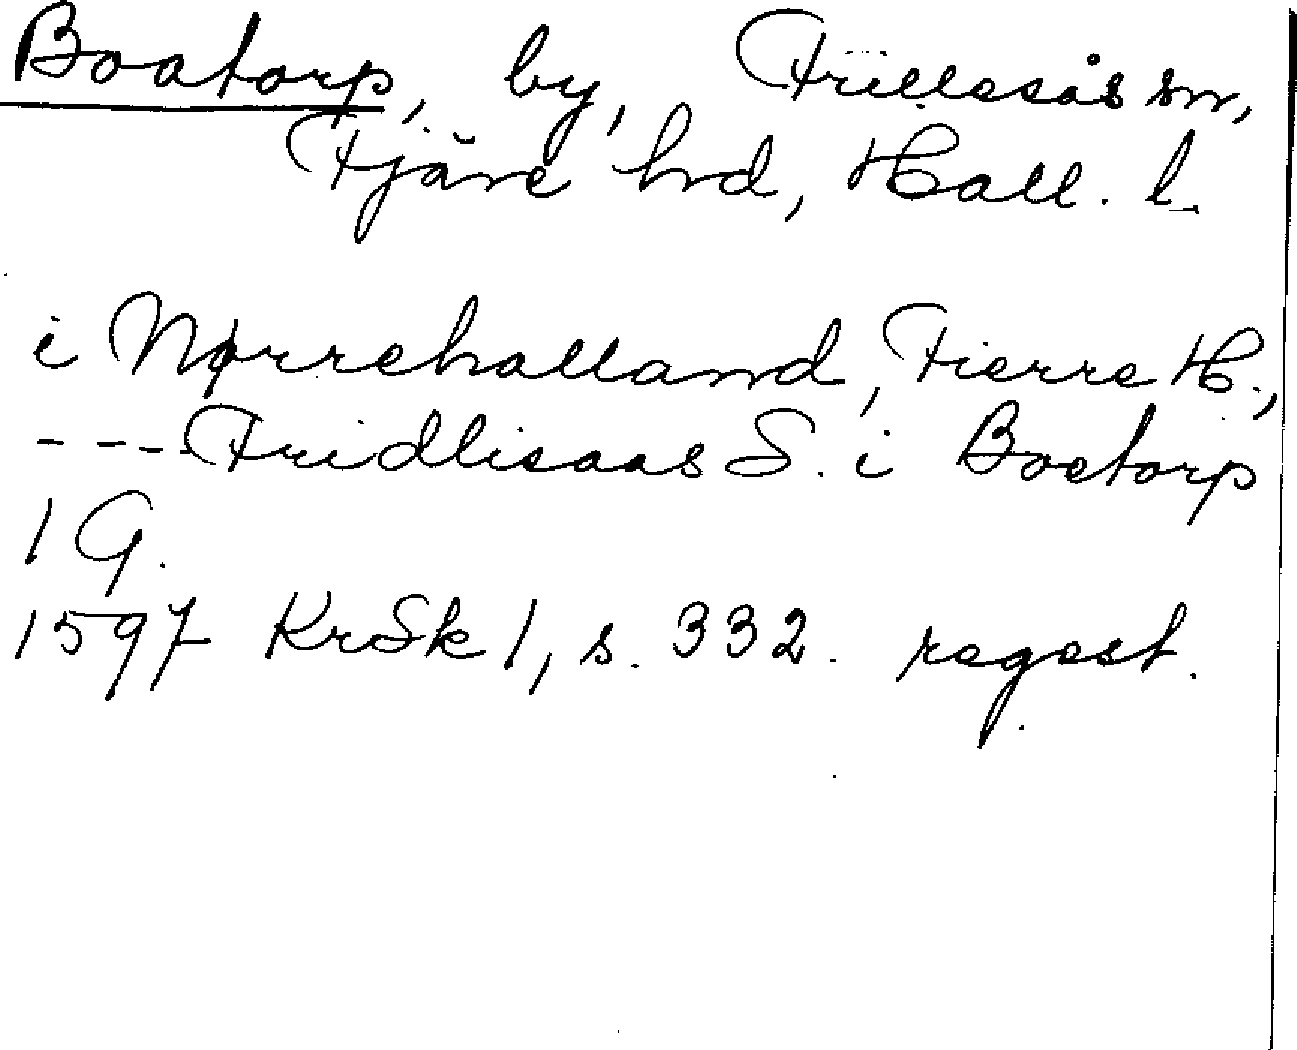 Boatorp, by, Frillesås sn,
Fjäre hrd, Hall. l.
i Nørrehalland, Fierre H.,
---- Fridlisaas S. i Boetorp
1 G.
1597 KrSk 1, s. 332. regest.